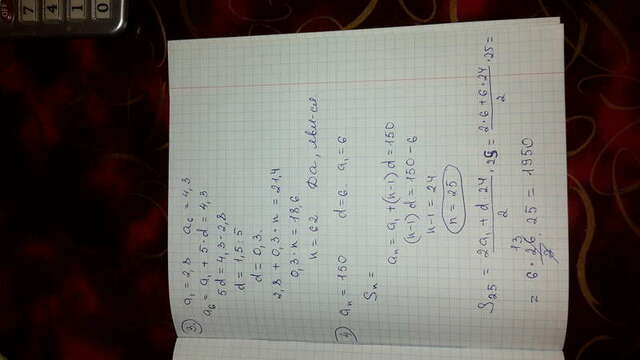 3) a₁ = 2,8 a₆ = 4,3
a₆ = a₁ + 5·d = 4,3
5d = 4,3 - 2,8
d = 1,5 : 5
d = 0,3
2,8 + 0,3·n = 21,4
0,3·n = 18,6
n = 62 Да, явл-ся
4) aₙ = 150 d = 6 a₁ = 6
Sₙ =
aₙ = a₁ + (n-1) d = 150
(n-1) d = 150 - 6
n-1 = 24
n = 25
S₂₅ = (2a₁ + d 24)/2 · 25 = (2·6 + 6·24)/2 · 25 =
= 6 · 26 13 25 = 1950
OFF
7
4
1
0